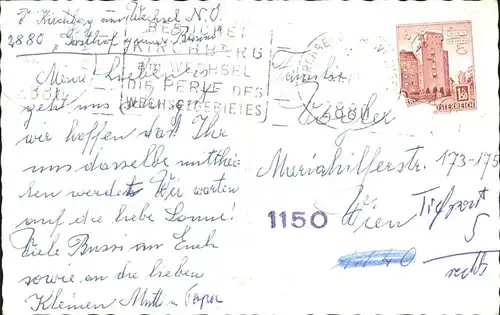 Kirchberg am Wechsel N.Ö.
2880 "Gasthof
KIRCHBERG
AM WECHSEL
DIE PERLE DES
WECHSELGEBIETES
2880
1.50
ÖSTERREICH
Meine Lieben
geht uns
wir hoffen daß Ihr
uns dasselbe mitthei-
len werdet Wir warten
auf die liebe Sonne!
Viele Bussi an Euch
sowie an die lieben
Kleinen Mutti u Papa
Familie
Mariahilferstr. 173-175
1150 Wien
5
rechts